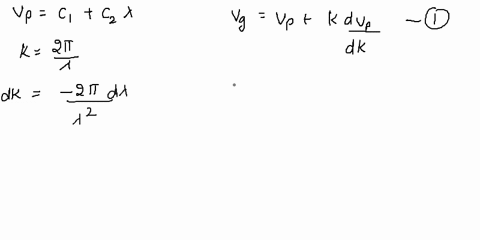 Vp = C1 + C2 λ
K = 2π/λ
dK = -2π dλ/λ²
Vg = Vp + K dVp/dK — ①